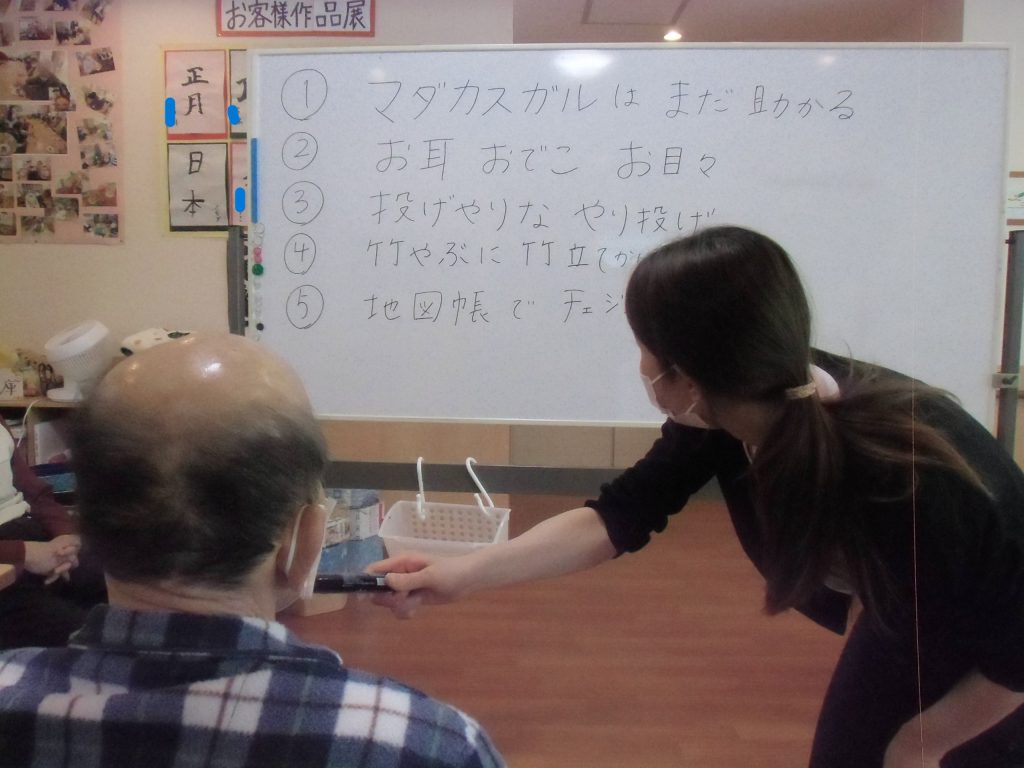 お客様作品展
正月
日本
① マダカスガルは まだ 助かる
② お耳 おでこ お目々
③ 投げやりな やり投げ
④ 竹やぶに 竹立てか
⑤ 地図帳で チェジ
庫